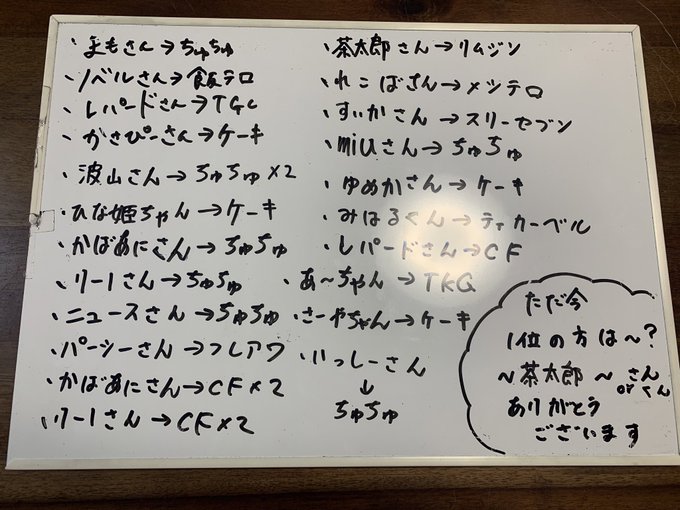 ・まもさん→ちゅちゅ
・ノベルさん→飯テロ
・レパードさん→TGC
・かさぴーさん→ケーキ
・波山さん→ちゅちゅ×2
・ひな姫ちゃん→ケーキ
・かばあにさん→ちゅちゅ
・リーしさん→ちゅちゅ
・ニュースさん→ちゅちゅ
・パーシーさん→フレアワ
・かばあにさん→CF×2
・リーしさん→CF×2
・茶太郎さん→リムジン
・れこばさん→メシテロ
・すいかさん→スリーセブン
・miuさん→ちゅちゅ
・ゆめかさん→ケーキ
・みはるくん→ティカーベル
・レパードさん→CF
・あ〜ちゃん→TKG
・さーやちゃん→ケーキ
・いっしーさん
↓
ちゅちゅ
ただ今
1位の方は〜?
〜茶太郎〜さん
orくん
ありがとう
ございます